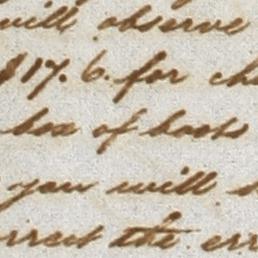 will observe
$17.6. for ch
box of books
you will
rrect the err